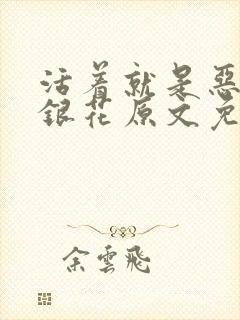 活着就是恶
銀花原文免
余雲飛